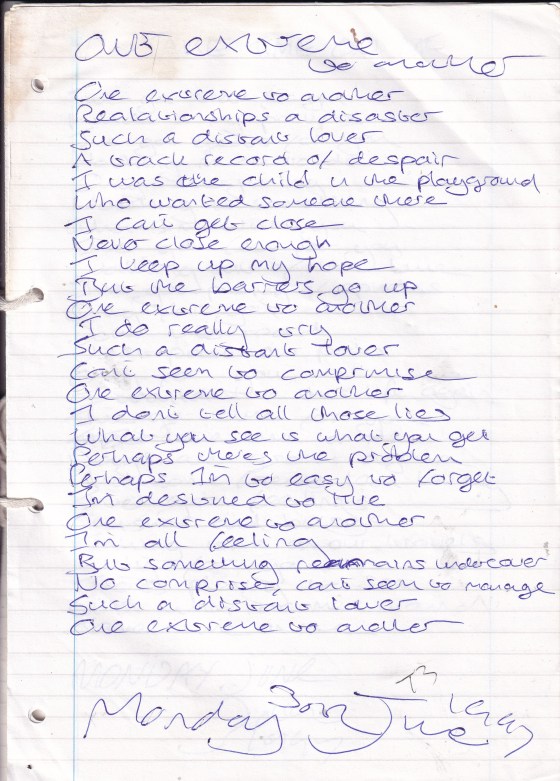 One extreme
to another
One extreme to another
Realationships a disaster
Such a distant lover
A track record of despair
I was the child in the playground
who wanted someone there
I can't get close
Never close enough
I keep up my hope
But the barriers go up
One extreme to another
I do really try
Such a distant lover
Can't seem to comprimise
One extreme to another
I don't tell all those lies
What you see is what you get
Perhaps theres the problem
Perhaps I'm to easy to forget
I'm designed to live
One extreme to another
I'm all feeling
But something remains undercover
No comprise, can't seem to manage
Such a distant lover
One extreme to another
Monday 30th June